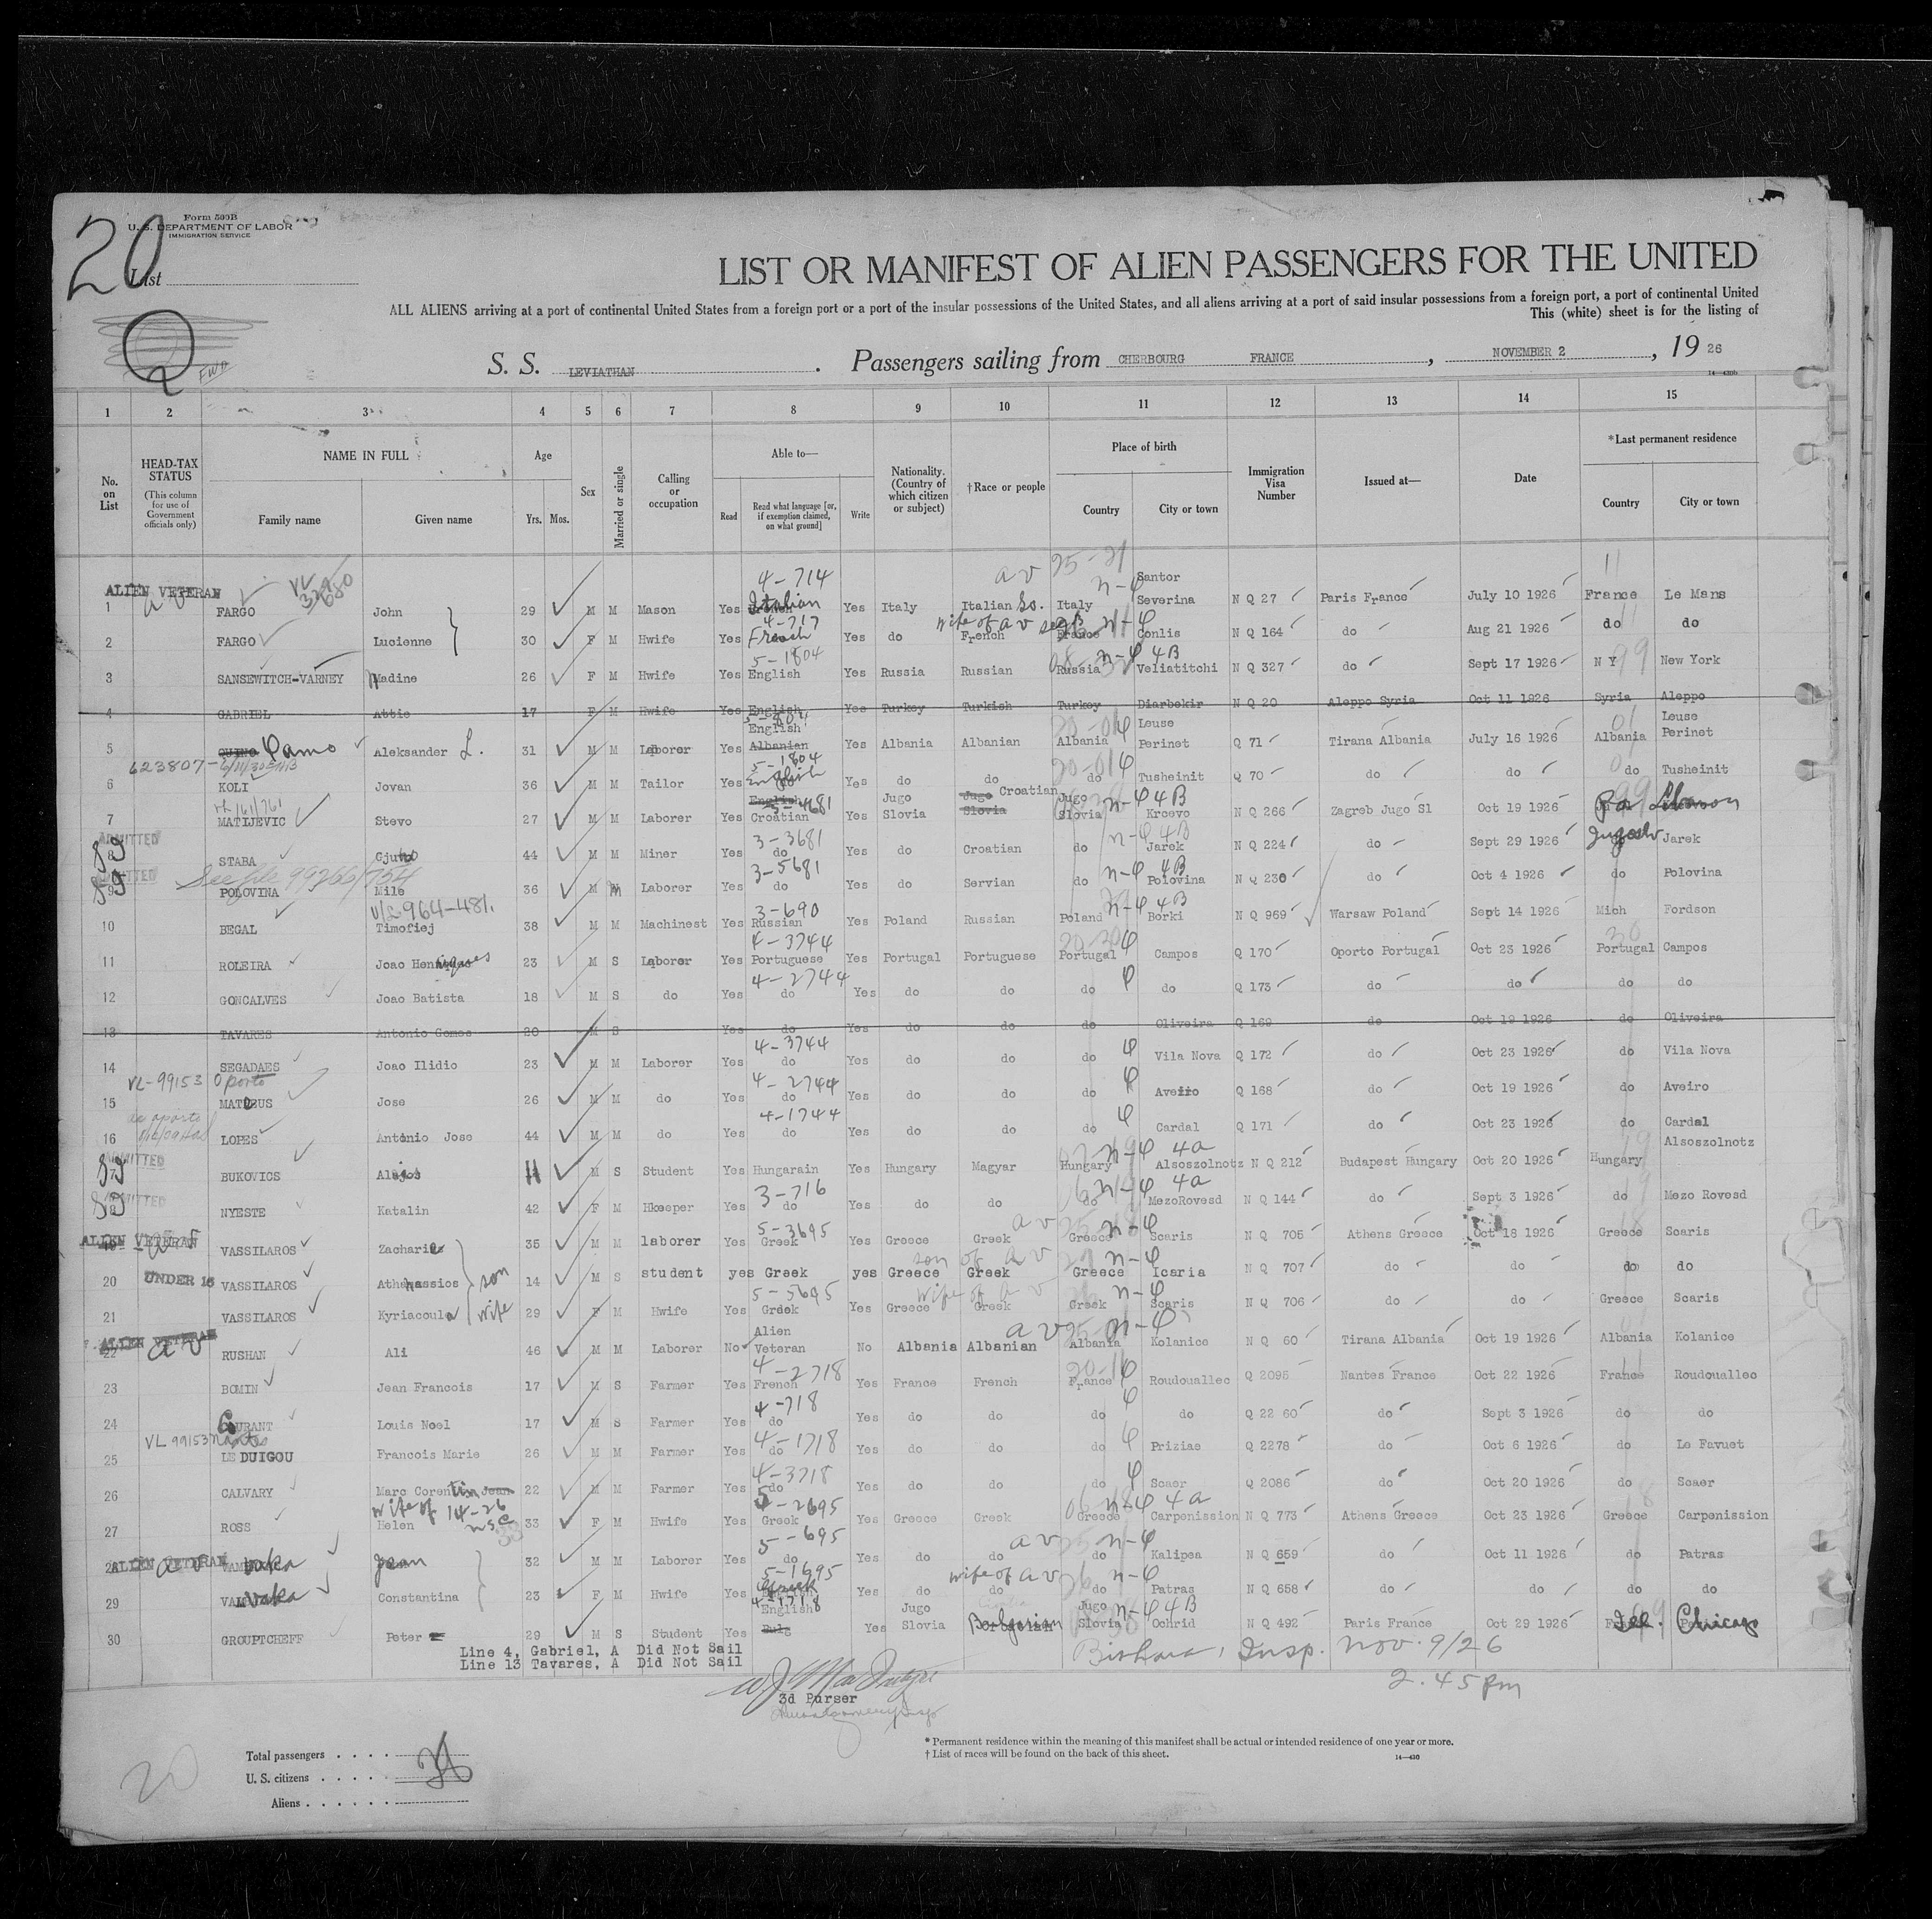 20
Form 500B
U. S. DEPARTMENT OF LABOR
IMMIGRATION SERVICE
List
LIST OR MANIFEST OF ALIEN PASSENGERS FOR THE UNITED
ALL ALIENS arriving at a port of continental United States from a foreign port or a port of the insular possessions of the United States, and all aliens arriving at a port of said insular possessions from a foreign port, a port of continental United
This (white) sheet is for the listing of
S. S. LEVIATHAN . Passengers sailing from CHERBOURG FRANCE , NOVEMBER 2 , 19 26
14—430b
1 2 3 4 5 6 7 8 9 10 11 12 13 14 15
No. on List
HEAD-TAX STATUS
(This column for use of Government officials only)
NAME IN FULL
Family name Given name
Age
Yrs. Mos.
Sex
Married or single
Calling or occupation
Able to—
Read Read what language [or, if exemption claimed, on what ground] Write
Nationality. (Country of which citizen or subject)
†Race or people
Place of birth
Country City or town
Immigration Visa Number
Issued at—
Date
*Last permanent residence
Country City or town
ALIEN VETERAN 4-714 a v 25-21 n-φ Santor
1 FARGO John 29 M M Mason Yes Italian Yes Italy Italian So. Italy Severina N Q 27 Paris France July 10 1926 France Le Mans
4-717 wife of a v
2 FARGO Lucienne 30 F M Hwife Yes French Yes do French France Conlis N Q 164 do Aug 21 1926 do do
5-1804 n-φ 4B
3 SANSEWITCH-VARNEY Nadine 26 F M Hwife Yes English Yes Russia Russian Russia Veliatitchi N Q 327 do Sept 17 1926 N Y New York
4 GABRIEL Attie 17 F M Hwife Yes English Yes Turkey Turkish Turkey Diarbekir N Q 20 Aleppo Syria Oct 11 1926 Syria Aleppo
English Leuse Leuse
5 QUINO Aleksander L. 31 M M Laborer Yes Albanian Yes Albania Albanian Albania Perinet Q 71 Tirana Albania July 16 1926 Albania Perinet
623807- 5-1804
6 KOLI Jovan 36 M M Tailor Yes English Yes do do do Tusheinit Q 70 do do do Tusheinit
English Jugo Jugo Croatian Jugo n-φ 4B
7 MATIJEVIC Stevo 27 M M Laborer Yes Croatian Yes Slovia Slovia Slovia Krcevo N Q 266 Zagreb Jugo Sl Oct 19 1926
ADMITTED 3-3681 n-φ 4B
8 STABA Gjuro 44 M M Miner Yes do Yes do Croatian do Jarek N Q 224 do Sept 29 1926 Jugoslv Jarek
See file 99366/754 3-5681 n-φ 4B
9 POLOVINA Mile 36 M M Laborer Yes do Yes do Servian do Polovina N Q 230 do Oct 4 1926 do Polovina
3-690 n-φ 4B
10 BEGAL Timofiej 38 M M Machinest Yes Russian Yes Poland Russian Poland Borki N Q 969 Warsaw Poland Sept 14 1926 Mich Fordson
4-3744
11 ROLEIRA Joao Henriques 23 M S Laborer Yes Portuguese Yes Portugal Portuguese Portugal Campos Q 170 Oporto Portugal Oct 23 1926 Portugal Campos
4-2744
12 GONCALVES Joao Batista 18 M S do Yes do Yes do do do do Q 173 do do do do
13 TAVARES Antonio Gomes 20 M S Yes do Yes do do do Oliveira Q 169 do Oct 19 1926 do Oliveira
4-3744
14 SEGADAES Joao Ilidio 23 M M Laborer Yes do Yes do do do Vila Nova Q 172 do Oct 23 1926 do Vila Nova
VL-99153 Oporto 4-2744
15 MATEUS Jose 26 M M do Yes do Yes do do do Aveiro Q 168 do Oct 19 1926 do Aveiro
4-1744
16 LOPES Antonio Jose 44 M M do Yes do Yes do do do Cardal Q 171 do Oct 23 1926 do Cardal
ADMITTED n-φ 4a Alsoszolnotz
17 BUKOVICS Alajos 11 M S Student Yes Hungarain Yes Hungary Magyar Hungary Alsoszolnotz N Q 212 Budapest Hungary Oct 20 1926 Hungary
ADMITTED 3-716 n-φ 4a
18 NYESTE Katalin 42 F M Hkeeper Yes do Yes do do do MezoRovesd N Q 144 do Sept 3 1926 do Mezo Rovesd
ALIEN VETERAN 5-3695 a v n-φ
19 VASSILAROS Zacharie 35 M M laborer Yes Greek Yes Greece Greek Greece Scaris N Q 705 Athens Greece Oct 18 1926 Greece Scaris
son of a v n-φ
20 UNDER 16 VASSILAROS Athanassios son 14 M S student yes Greek yes Greece Greek Greece Icaria N Q 707 do do do do
5-3695 wife of a v n-φ
21 VASSILAROS Kyriacoula wife 29 F M Hwife Yes Greek Yes Greece Greek Greek Scaris N Q 706 do do Greece Scaris
ALIEN VETERAN Alien a v n-φ
22 RUSHAN Ali 46 M M Laborer No Veteran No Albania Albanian Albania Kolanice N Q 60 Tirana Albania Oct 19 1926 Albania Kolanice
4-2718
23 BOMIN Jean Francois 17 M S Farmer Yes French Yes France French France Roudouallec Q 2095 Nantes France Oct 22 1926 France Roudouallec
4-718
24 COURANT Louis Noel 17 M S Farmer Yes do Yes do do do do Q 22 60 do Sept 3 1926 do do
VL 99153 Nantes 4-1718
25 LE DUIGOU Francois Marie 26 M M Farmer Yes do Yes do do do Priziac Q 2278 do Oct 6 1926 do Le Favuet
4-3718
26 CALVARY Marc Corentin Jean 22 M M Farmer Yes do Yes do do do Scaer Q 2086 do Oct 20 1926 do Scaer
wife of 14-26 2695 n-φ 4a
27 ROSS Helen 33 F M Hwife Yes Greek Yes Greece Greek Greece Carpenission N Q 773 Athens Greece Oct 23 1926 Greece Carpenission
5-695 a v n-φ
ALIEN VETERAN Vaka Jean 32 M M Laborer Yes do Yes do do do Kalipea N Q 659 do Oct 11 1926 do Patras
5-1695 wife of a v n-φ
29 Vaka Constantina 23 F M Hwife Yes Greek Yes do do do Patras N Q 658 do do do do
4-1718 English Jugo Jugo n-φ 4B
30 GROUPTCHEFF Peter 29 M S Student Yes Bulg Yes Slovia Bulgarian Slovia Ochrid N Q 492 Paris France Oct 29 1926 Ill. Chicago
Line 4, Gabriel, A Did Not Sail
Line 13 Tavares, A Did Not Sail
Bishara, Insp. Nov. 9/26
2.45 pm
3d Purser
* Permanent residence within the meaning of this manifest shall be actual or intended residence of one year or more.
† List of races will be found on the back of this sheet.
14—430
Total passengers
U. S. citizens
Aliens
20